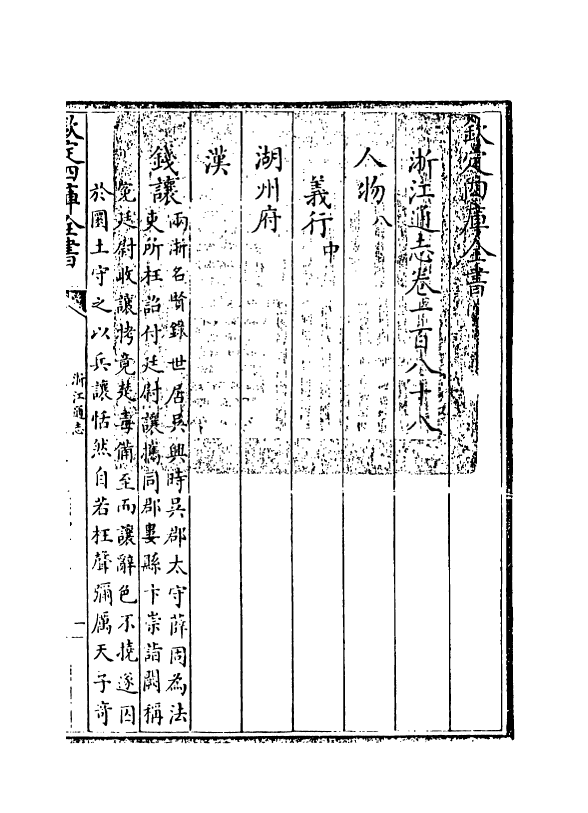 欽定四庫全書
浙江通志卷一百八十八
人物八
義行中
湖州府
漢
錢讓兩浙名賢錄世居吳興時吳郡太守薛固為法
吏所枉詔付廷尉讓攜同郡婁縣卞崇詣闕稱
寃廷尉收讓拷竟楚毒備至而讓辭色不撓遂囚
於圜土守之以兵讓恬然自若枉聲彌厲天子奇
欽定四庫全書
浙江通志
一